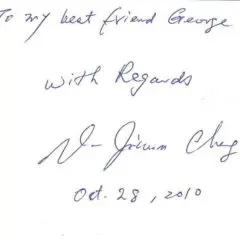 To my best friend George
With Regards
Cheng
Oct. 28, 2010